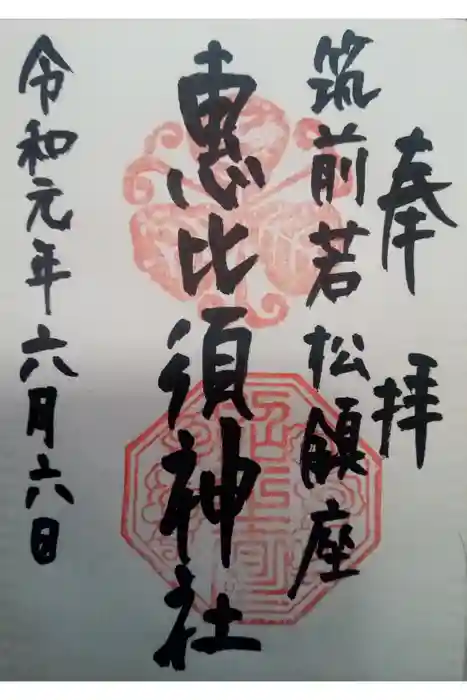 奉拝
筑前若松鎮座
恵比須神社
令和元年六月六日